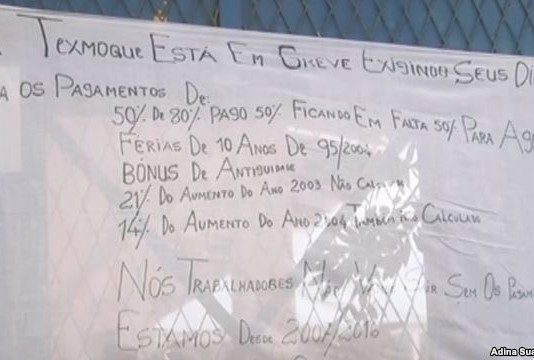 Texmoque Está Em Greve Exigindo Seus Di
A Os Pagamentos De:
50% De 80% Pago 50% Ficando Em Falta 50% Para Ag
Férias De 10 Anos De 95/2004
Bónus De Antiguidade
21% Do Aumento Do Ano 2003 Não
14% Do Aumento Do Ano 2004 Também não Calculam
Nós Trabalhadores Sair Sem Os Pagam
Estamos Desde
Adina Sua